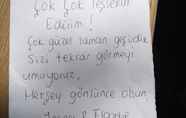 Çok çok teşekkür
Ederim!
Çok güzel zaman geçirdik
Sizi tekrar görmeyi
umuyoruz.
Herşey gönlünce olsun,
&